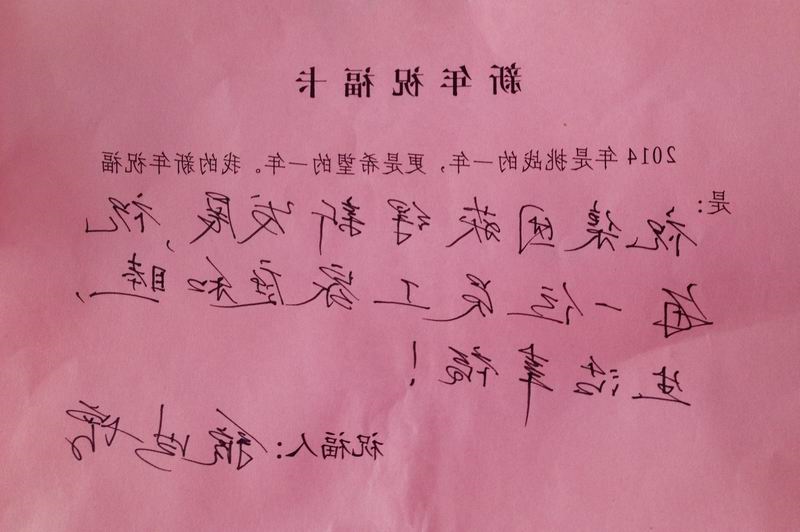 新年祝福卡
2014年是挑战的一年，更是希望的一年。我的新年祝福
是：
祝集团获得新发展，祝
每一位员工家庭和睦，
生活幸福！
祝福人：